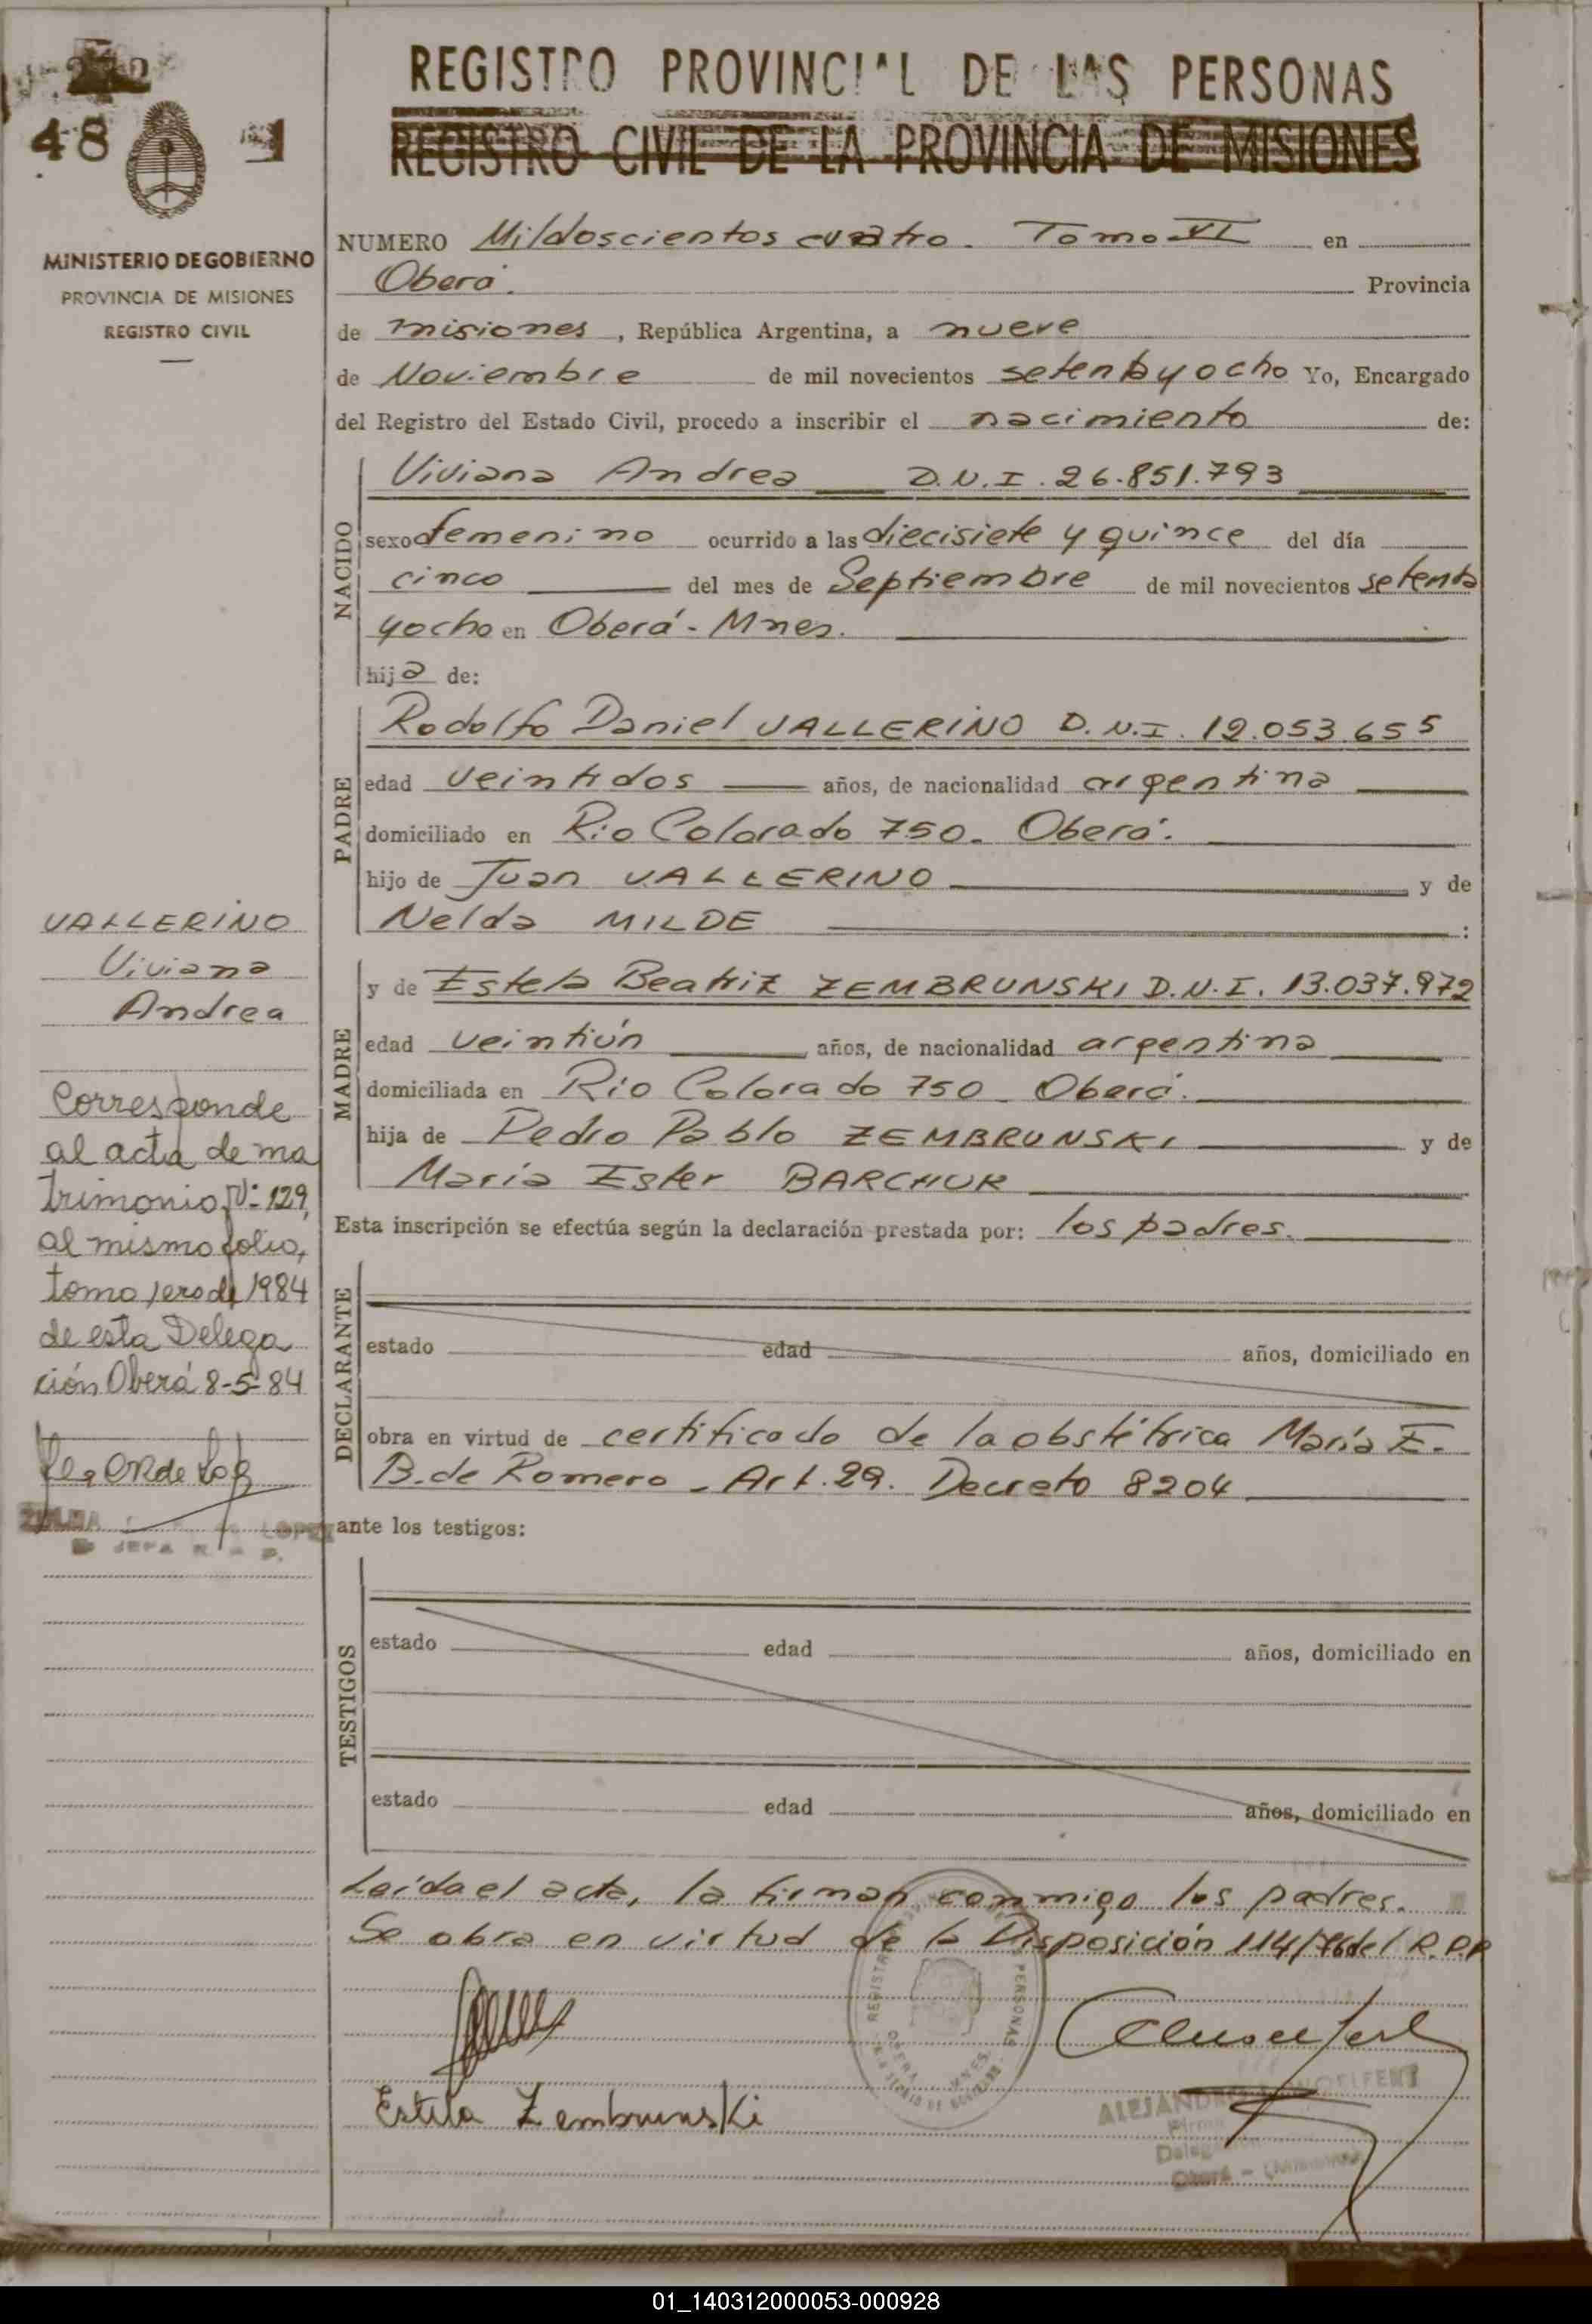 48
MINISTERIO DE GOBIERNO
PROVINCIA DE MISIONES
REGISTRO CIVIL
VALLERINO
Viviana
Andrea
Corresponde
al acta de ma
trimonio Nº 129,
al mismo folio,
tomo 1ero de 1984
de esta Delega
ción Oberá 8-5-84
LOPEZ
JEFA
REGISTRO PROVINCIAL DE LAS PERSONAS
REGISTRO CIVIL DE LA PROVINCIA DE MISIONES
NUMERO Mil doscientos cuatro. Tomo VI en
Oberá. Provincia
de misiones, República Argentina, a nueve
de Noviembre de mil novecientos setenta y ocho Yo, Encargado
del Registro del Estado Civil, procedo a inscribir el nacimiento de:
NACIDO
Viviana Andrea D.N.I. 26.851.793
sexo femenino ocurrido a las diecisiete y quince del día
cinco del mes de Septiembre de mil novecientos setenta
y ocho en Oberá - Mnes.
hija de:
PADRE
Rodolfo Daniel VALLERINO D.N.I. 12.053.655
edad veintidos años, de nacionalidad argentina
domiciliado en Rio Colorado 750. Oberá.
hijo de Juan VALLERINO y de
Nelda MILDE :
MADRE
y de Estela Beatriz ZEMBRUNSKI D.N.I. 13.037.972
edad veintiún años, de nacionalidad argentina
domiciliada en Rio Colorado 750 Oberá.
hija de Pedro Pablo ZEMBRUNSKI y de
María Ester BARCHUK
Esta inscripción se efectúa según la declaración prestada por: los padres.
DECLARANTE
estado edad años, domiciliado en
obra en virtud de certificado de la obstétrica María E.
B. de Romero - Art. 29. Decreto 8204
ante los testigos:
TESTIGOS
estado edad años, domiciliado en
estado edad años, domiciliado en
Leída el acta, la firman conmigo los padres.
Se obra en virtud de la Disposición 114/76 del R.P.P
REGISTRO PERSONAS
OBERA MNES.
Estela Zembrunski
Oberá - (Misiones)
01_140312000053-000928